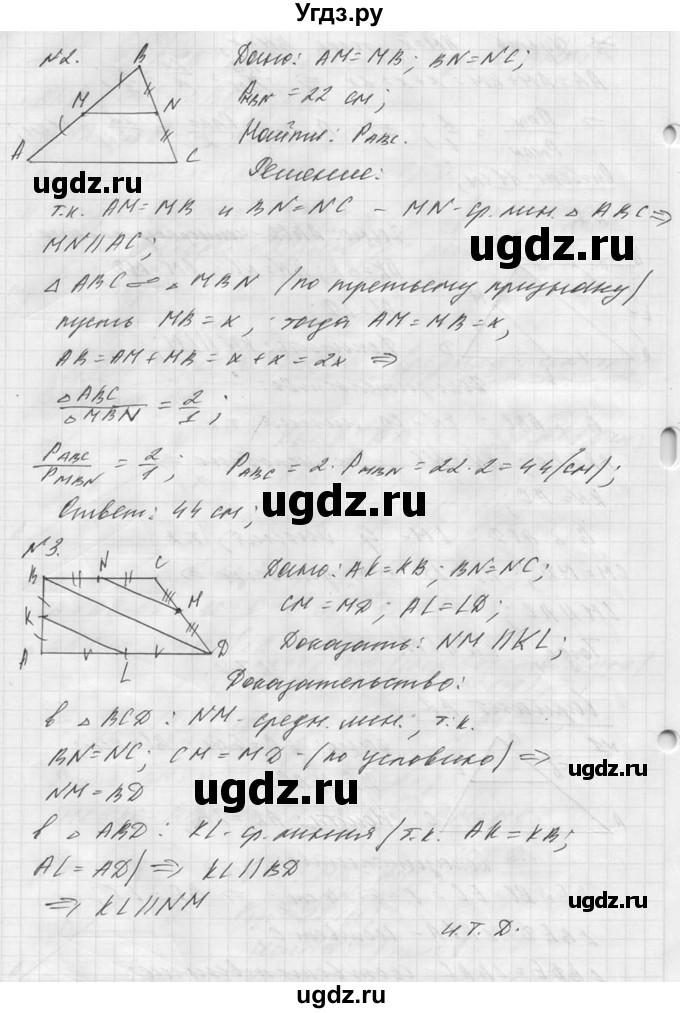 Угдз.ру
№2.
Дано: AM = MB; BN = NC;
P_MBN = 22 см;
Найти: P_ABC.
Решение:
B
M
N
A
C
ugdz.ru
ugdz.ru
т.к. AM = MB и BN = NC - MN - ср. лин. △ ABC ⇒
MN || AC;
ugdz.ru
△ ABC ∞ △ MBN (по третьему признаку)
пусть MB = x, тогда AM = MB = x,
AB = AM + MB = x + x = 2x ⇒
ugdz.ru
△ABC/△MBN = 2/1;
P_ABC/P_MBN = 2/1; P_ABC = 2 · P_MBN = 22 · 2 = 44 (см);
ugdz.ru
Ответ: 44 см;
ugdz.ru
№3.
Дано: AK = KB; BN = NC;
CM = MD; AL = LD;
Доказать: NM || KL;
Доказательство:
B
N
C
M
K
A
L
D
ugdz.ru
в △ BCD: NM - средн. лин., т.к.
BN = NC; CM = MD - (по условию) ⇒
ugdz.ru
NM = BD
ugdz.ru
в △ ABD: KL - ср. линия (т.к. AK = KB;
AL = AD) ⇒ KL || BD
ugdz.ru
⇒ KL || NM
ч.т.д.
ugdz.ru